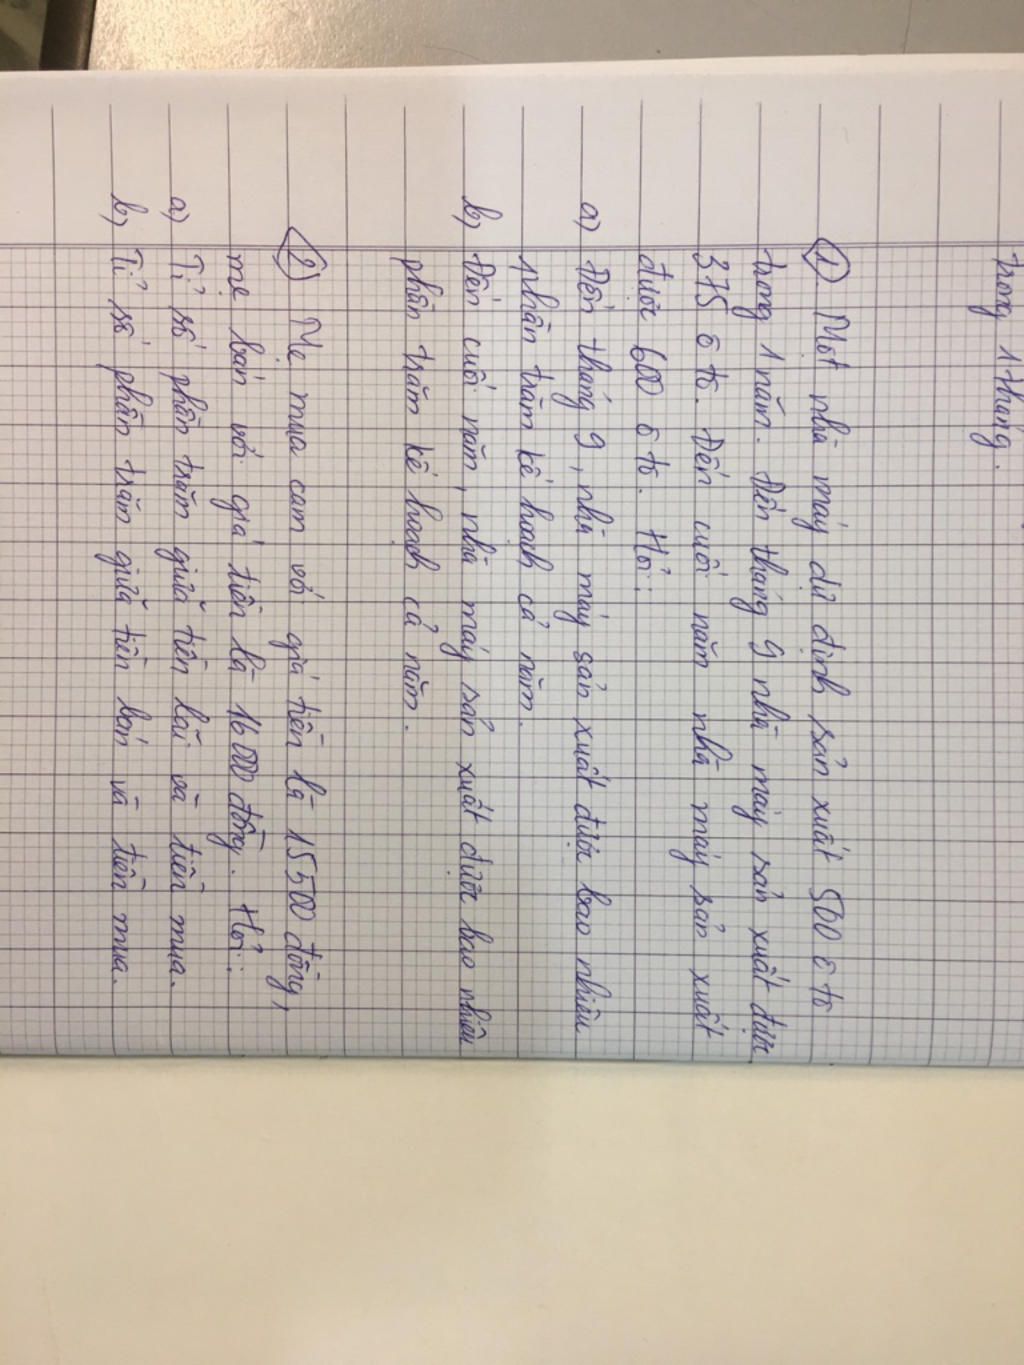 trong 1 tháng.
1. Một nhà máy dự định sản xuất 500 ô tô
trong 1 năm. Đến tháng 9 nhà máy sản xuất được
375 ô tô. Đến cuối năm nhà máy sản xuất
được 600 ô tô. Hỏi:
a) Đến tháng 9, nhà máy sản xuất được bao nhiêu
phần trăm kế hoạch cả năm.
b) Đến cuối năm, nhà máy sản xuất được bao nhiêu
phần trăm kế hoạch cả năm.
2) Mẹ mua cam với giá tiền là 15500 đồng,
mẹ bán với giá tiền là 16000 đồng. Hỏi:
a) Tỉ số phần trăm giữa tiền lãi và tiền mua.
b) Tỉ số phần trăm giữa tiền bán và tiền mua.